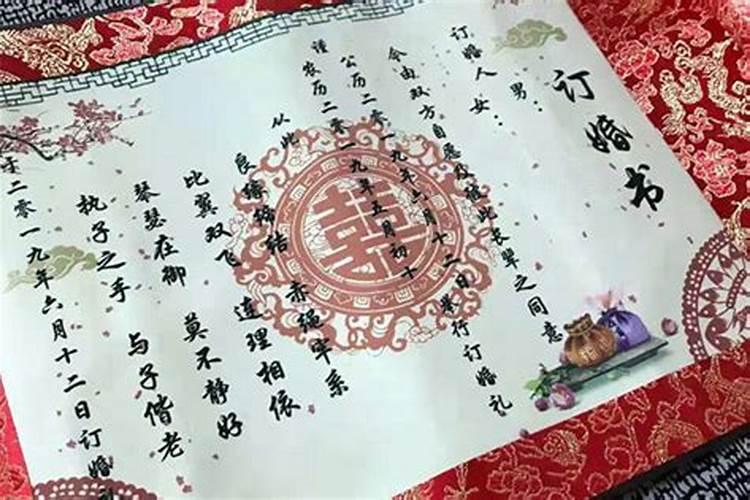 订婚书
订婚人 男：
女：
今由双方自愿及双方彼此长辈之同意
公历二零一九年六月十二日举行订婚礼
谨农历二零一九年五月初十
从此 赤绳牢系
良缘缔结 连理相依
比翼双飞 莫不静好
琴瑟在御 与子偕老
执子之手
于二零一九年六月十二日订婚